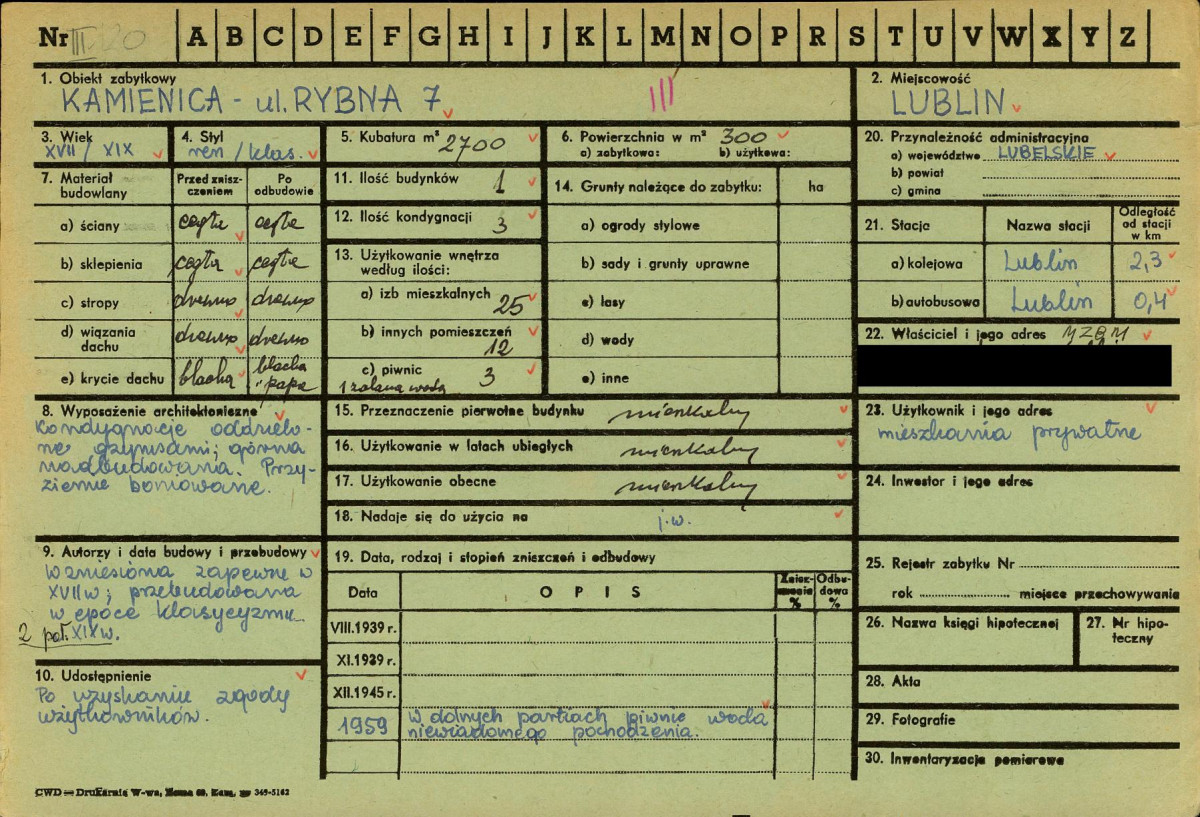 Nr III 20 A B C D E F G H I J K L M N O P R S T U V W X Y Z
1. Obiekt zabytkowy
KAMIENICA - ul. RYBNA 7
III
2. Miejscowość
LUBLIN
3. Wiek
XVII / XIX
4. Styl
ren / klas.
5. Kubatura m³ 2700
6. Powierzchnia w m² 300
a) zabytkowa: b) użytkowa:
20. Przynależność administracyjna
a) województwo LUBELSKIE
b) powiat
c) gmina
7. Materiał budowlany
Przed zniszczeniem
Po odbudowie
a) ściany cegła cegła
b) sklepienia cegła cegła
c) stropy drewno drewno
d) wiązania dachu drewno drewno
e) krycie dachu blacha blacha "papa
11. Ilość budynków 1
12. Ilość kondygnacji 3
13. Użytkowanie wnętrza
według ilości:
a) izb mieszkalnych 25
b) innych pomieszczeń 12
c) piwnic 3
1 zalana wodą
14. Grunty należące do zabytku: ha
a) ogrody stylowe
b) sady i grunty uprawne
c) lasy
d) wody
e) inne
21. Stacja
Nazwa stacji
Odległość
od stacji
w km
a) kolejowa Lublin 2,3
b) autobusowa Lublin 0,4
22. Właściciel i jego adres MZBM
8. Wyposażenie architektoniczne
Kondygnacje oddzielo-
ne gzymsami; górna
nadbudowana. Przy-
ziemie boniowane.
15. Przeznaczenie pierwotne budynku mieszkalny
16. Użytkowanie w latach ubiegłych mieszkalny
17. Użytkowanie obecne mieszkalny
18. Nadaje się do użycia na j.w.
23. Użytkownik i jego adres
mieszkania prywatne
24. Inwestor i jego adres
9. Autorzy i data budowy i przebudowy
Wzniesiona zapewne w
XVII w; przebudowana
w epoce klasycyzmu
2 poł. XIX w.
10. Udostępnienie
Po uzyskaniu zgody
użytkowników.
19. Data, rodzaj i stopień zniszczeń i odbudowy
Data
OPIS
Zniszczenie %
Odbudowa %
VIII.1939 r.
XI.1939 r.
XII.1945 r.
1959 W dolnych partiach piwnic woda
niewiadomego pochodzenia.
25. Rejestr zabytku Nr
rok miejsce przechowywania
26. Nazwa księgi hipotecznej
27. Nr hipoteczny
28. Akta
29. Fotografie
30. Inwentaryzacja pomiarowa
CWD — Drukarnia W-wa, zam. 349-5162